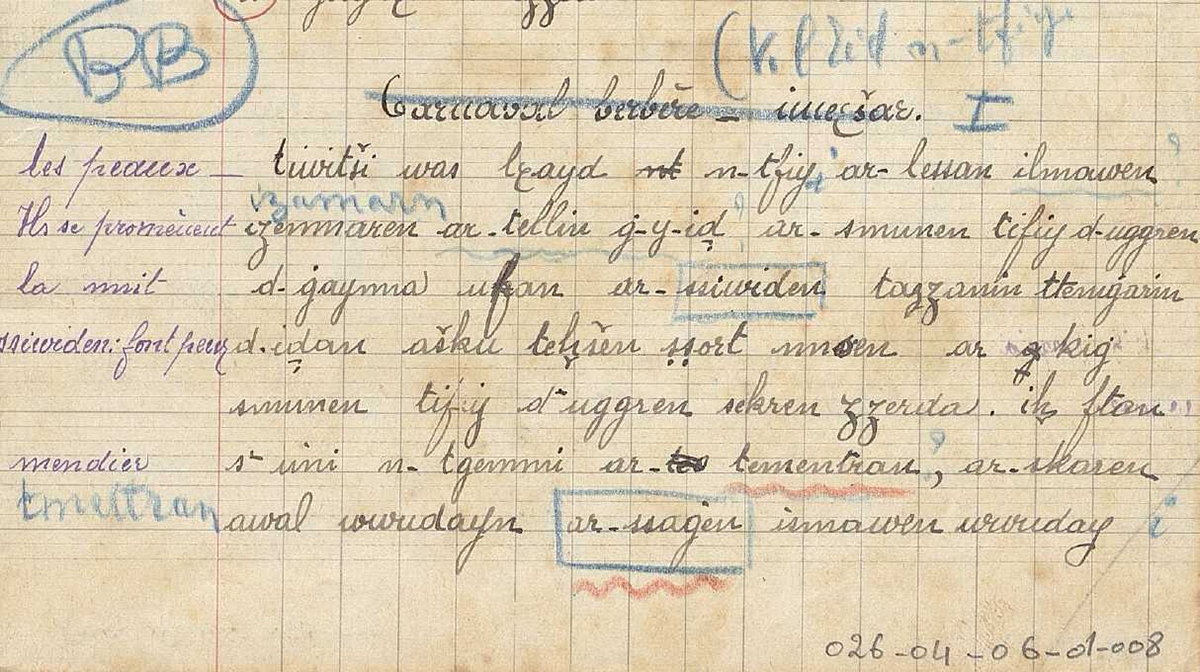 BB
(V. l ɛid n-tfiy
Carnaval berbère – imeɛšar. I
les peaux – tiwitši was lɛayd n-tfiy, ar-lessan ilmawen ?
izamarn
Ils se promènent izemmaren ar-tellin g-y-iḍ ? ar-smunen tifiy d-uggren
la nuit d-ġaynna ufan ar-ssiwiden taɛzzanin ttenuġarin
ssiwiden: font peur d.iḍan ašku teḥšen ṣṣort nnsen ar kig
smunen tifiy d-uggren sekren zzerda. ik ftan
mendier s-imi n-tgemmi ar- tementran ?, ar-skaren
tmettran awal wwudayn ar-ssaġen ismawen wwuday i
026-04-06-01-008